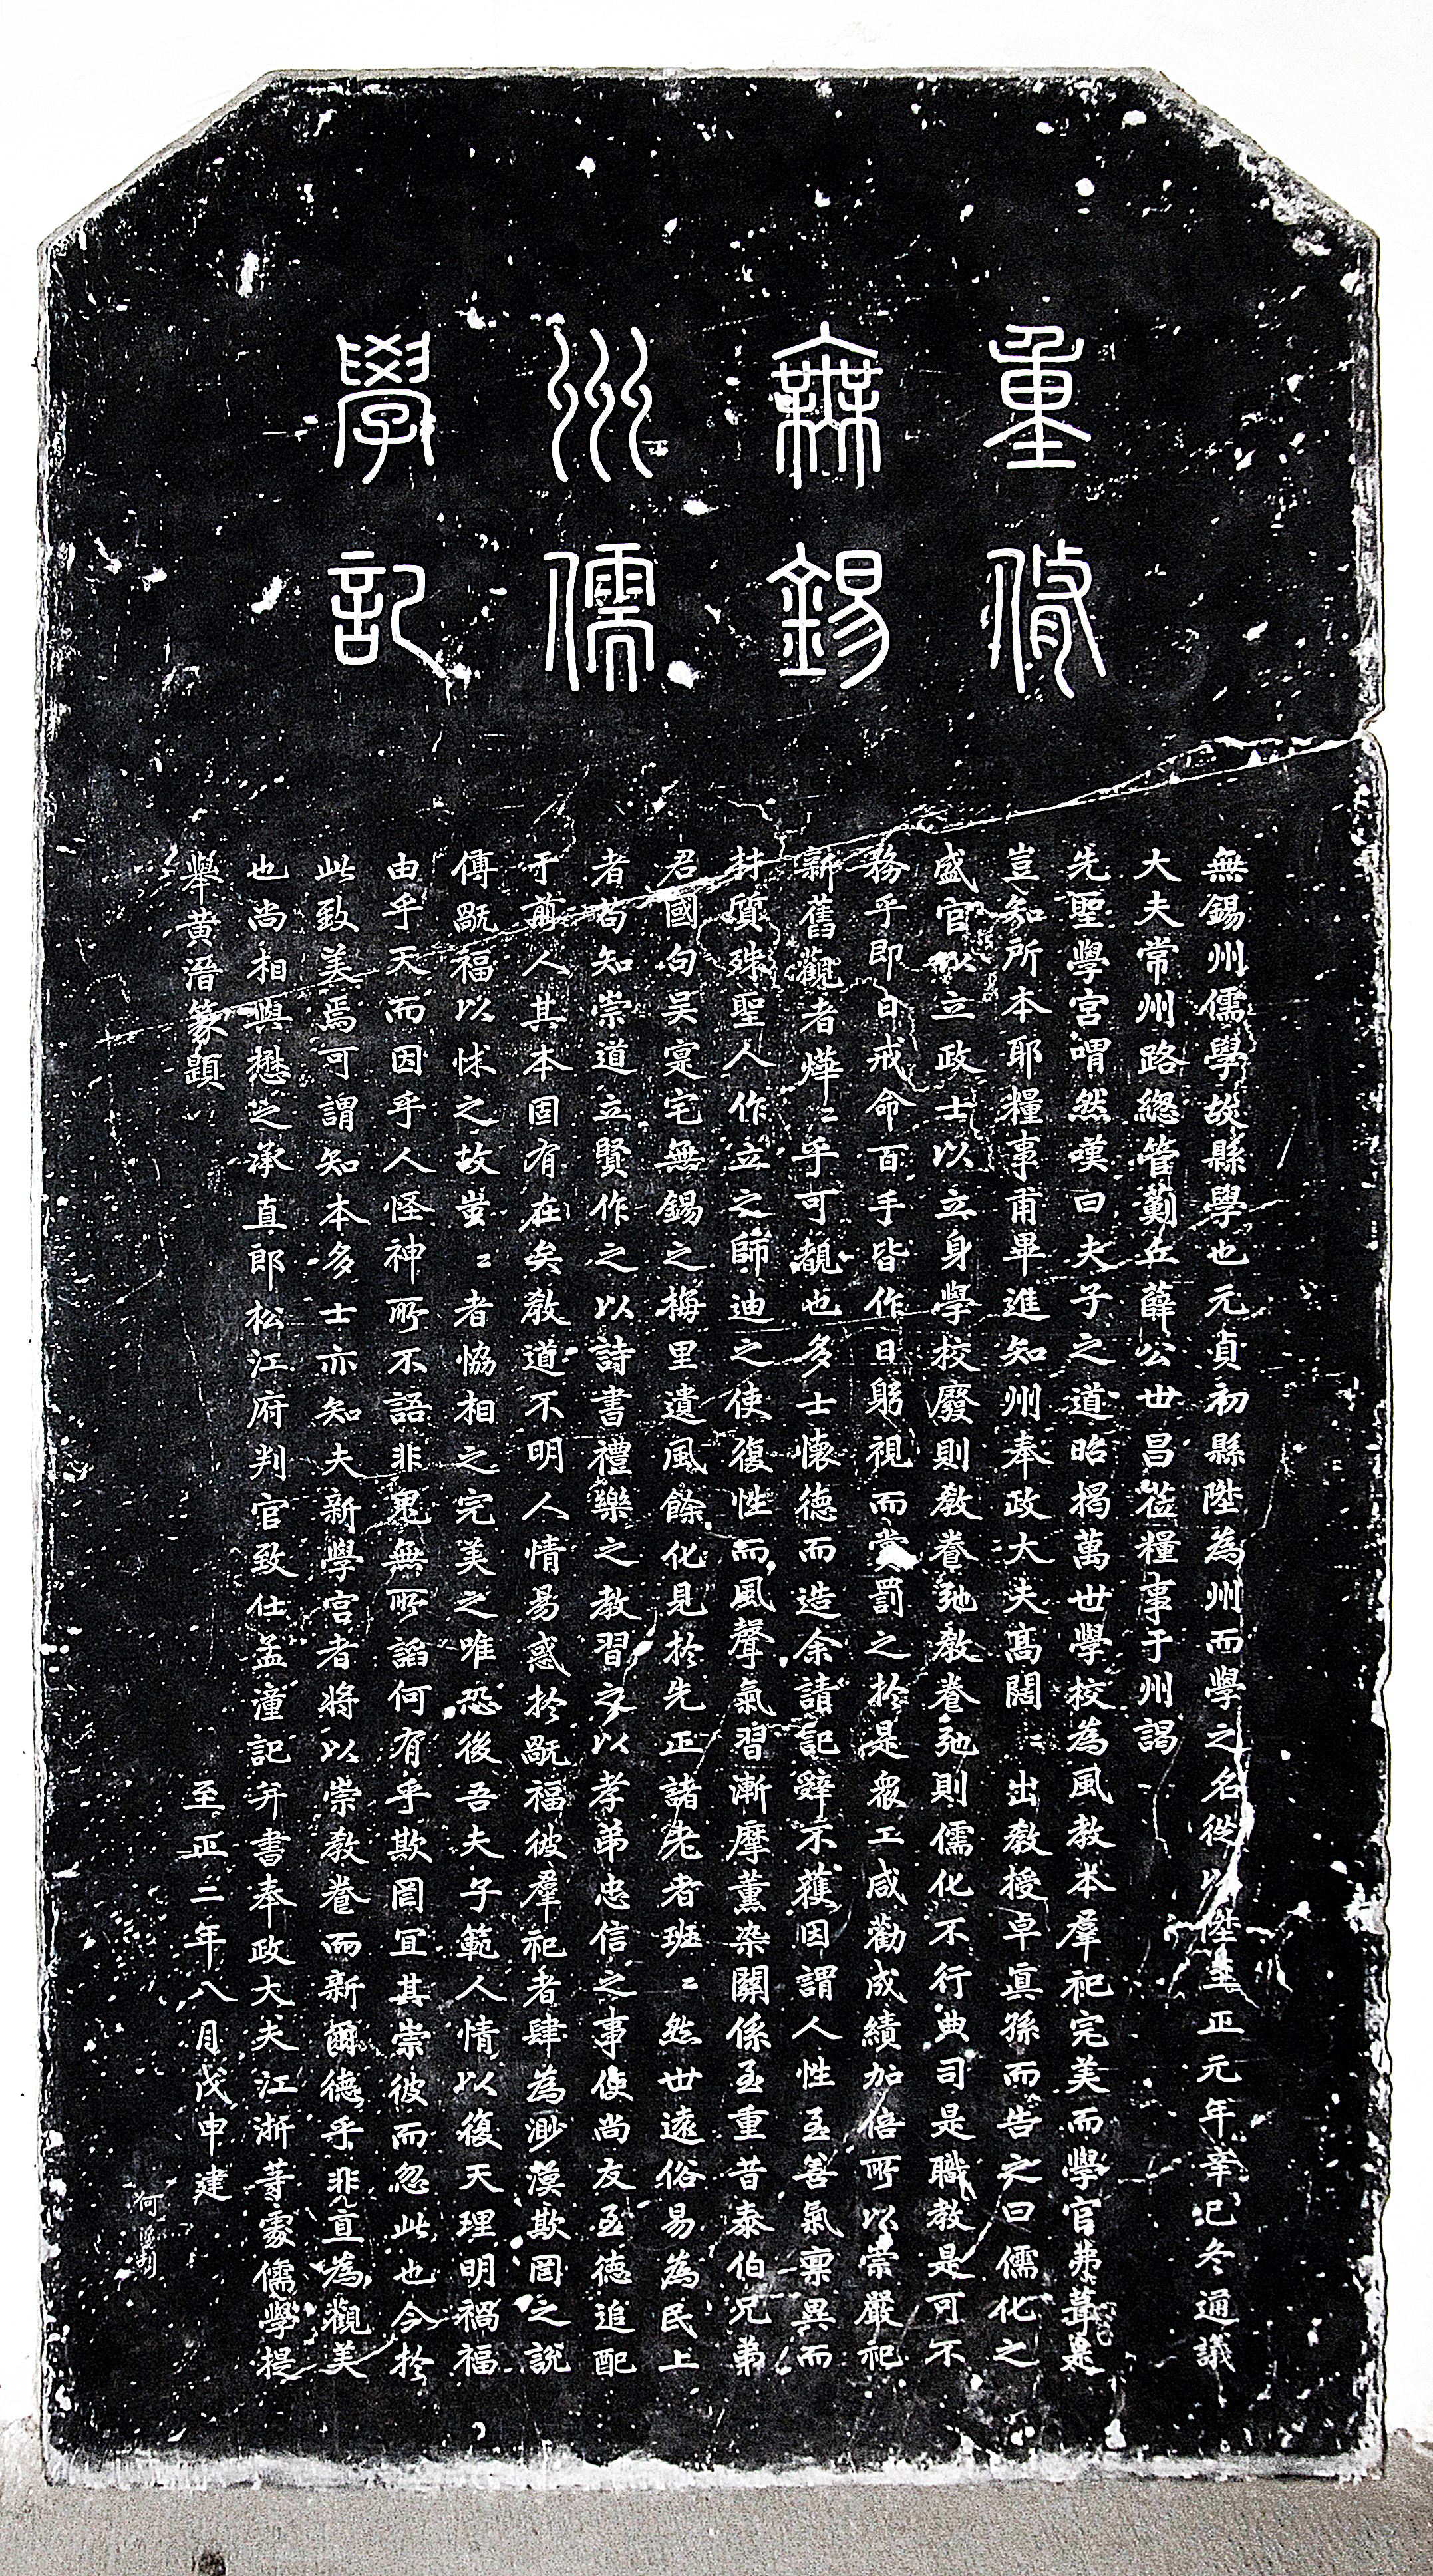 重修
無錫
州儒
學記
無錫州儒學故縣學也元貞初縣陞為州而學之名從以陞至正元年辛巳冬通議
大夫常州路總管薊丘薛公世昌莅糧事于州謁
先聖學宮喟然嘆曰夫子之道昭揭萬世學校為風教本羣祀完美而學官弗葺是
豈知所本耶糧事甫畢進知州奉政大夫髙闊〻出教授卓寘孫而告之曰儒化之
盛官以立政士以立身學校廢則教養弛教養弛則儒化不行典司是職教是可不
務乎即日戒命百手皆作日躬視而賞罰之於是衆工咸勸成績加倍所以崇嚴祀
新舊觀者燁〻乎可觀也多士懷德而造余請記辭不獲因謂人性至善氣稟異而
材質殊聖人作立之師迪之使復性而風聲氣習漸摩薰染關係至重昔泰伯兄弟
君國句吴寔宅無錫之梅里遺風餘化見於先正諸老者班〻然世遠俗易為民上
者苟知崇道立賢作之以詩書禮樂之教習之以孝弟忠信之事使尚友至德追配
于前人其本固有在矣教道不明人情易惑於翫福彼羣祀者肆為渺漠欺罔之說
傳翫福以怵之故蚩〻者恊相之完美之唯恐後吾夫子範人情以復天理明禍福
由乎天而因乎人怪神所不語非鬼無所諂何有乎欺罔宜其崇彼而忽此也今於
此致美焉可謂知本多士亦知夫新學宮者將以崇教養而新爾德乎非亶為觀美
也尚相與懋之承直郎松江府判官致仕孟潼記并書奉政大夫江浙等處儒學提
舉黄溍篆題 至正二年八月戊申建
何 刻